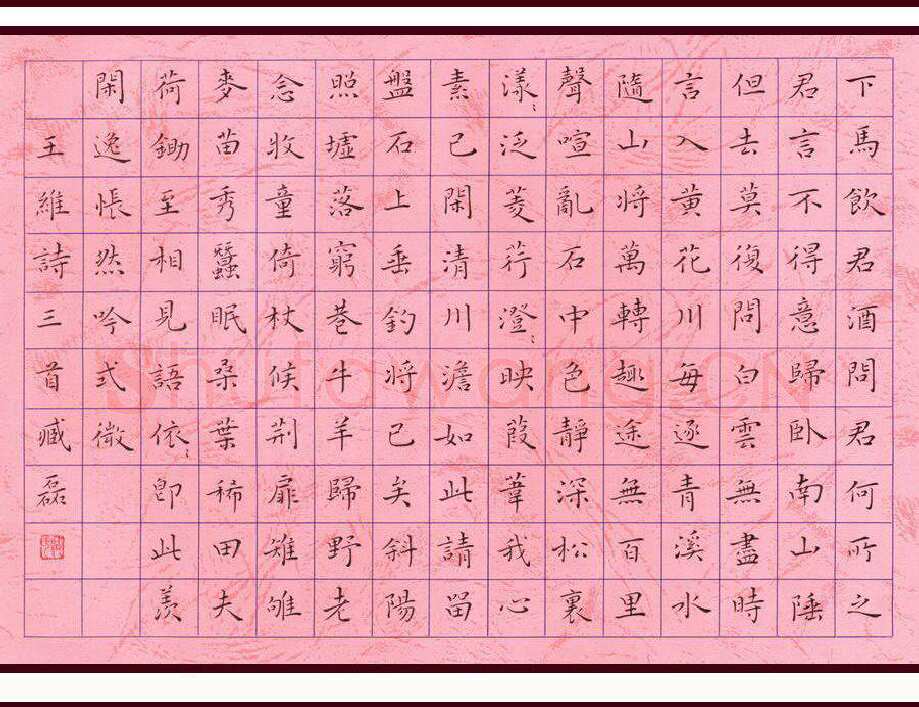 下馬飲君酒問君何所之
君言不得意歸臥南山陲
但去莫復問白雲無盡時
言入黃花川每逐青溪水
隨山將萬轉趣途無百里
聲喧亂石中色靜深松裏
漾〻泛菱荇澄〻映葭葦我心
素已閑清川澹如此請留
盤石上垂釣將已矣斜陽
照墟落窮巷牛羊歸野老
念牧童倚杖候荆扉雉雊
麥苗秀蠶眠桑葉稀田夫
荷鋤至相見語依〻即此羨
閑逸悵然吟式微
王維詩三首臧磊
Shufawang.CN